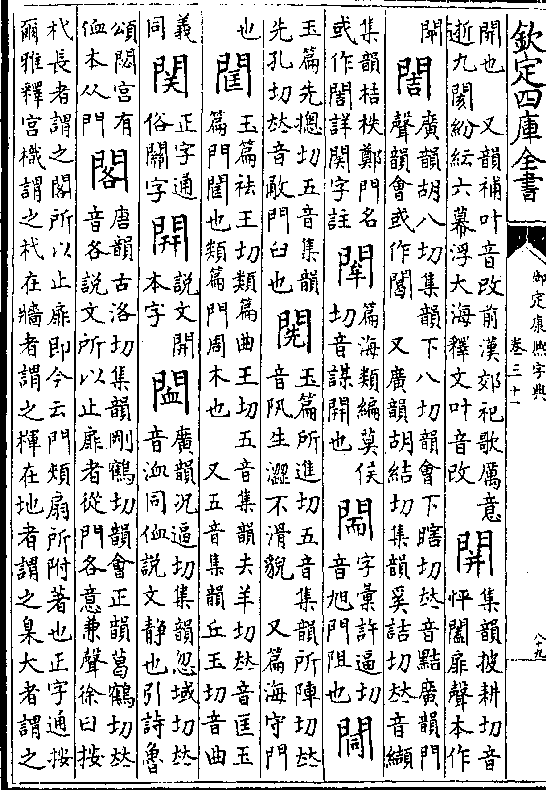 欽定四庫全書
御定康熙字典
卷三十一
八十九
開也　又韻補叶音改前漢郊祀歌厲意
逝九閡紛紜六幕浮大海釋文叶音改
閛集韻披耕切音
怦闔扉聲本作
閞
䦖廣韻胡八切集韻下八切韻會下瞎切𠀤音黠廣韻門
聲韻會或作闍　又廣韻胡結切集韻奚詰切𠀤音纈
集韻桔柣鄭門名
或作闍詳闋字註
䦈篇海類編莫侯
切音謀閞也
䦌字彙許逼切
音旭門阻也
䦚
玉篇先摠切五音集韻
先孔切𠀤音敵門臼也
䦏玉篇所進切五音集韻所陣切𠀤
音阠生澀不滑貌　又篇海守門
也
䦐玉篇袪王切類篇曲王切五音集韻去羊切𠀤音匡玉
篇門閮也類篇門周木也　又五音集韻丘玉切音曲
義
同
関正字通
俗關字
𨳡說文開
本字
䦗廣韻況逼切集韻忽域切𠀤
音洫同侐說文靜也引詩魯
頌閟宮有
侐本从門
閣唐韻古洛切集韻剛鶴切韻會正韻葛鶴切𠀤
音各說文所以止扉者從門各意兼聲徐曰按
杙長者謂之閣所以止扉即今云門頰扇所附著也正字通按
爾雅釋宮樴謂之杙在牆者謂之楎在地者謂之臬大者謂之